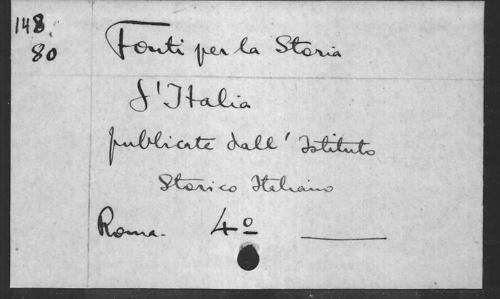 148.
80
Fonti per la Storia
d'Italia
publicate dall' Istituto
Storico Italiano
Roma. 4º